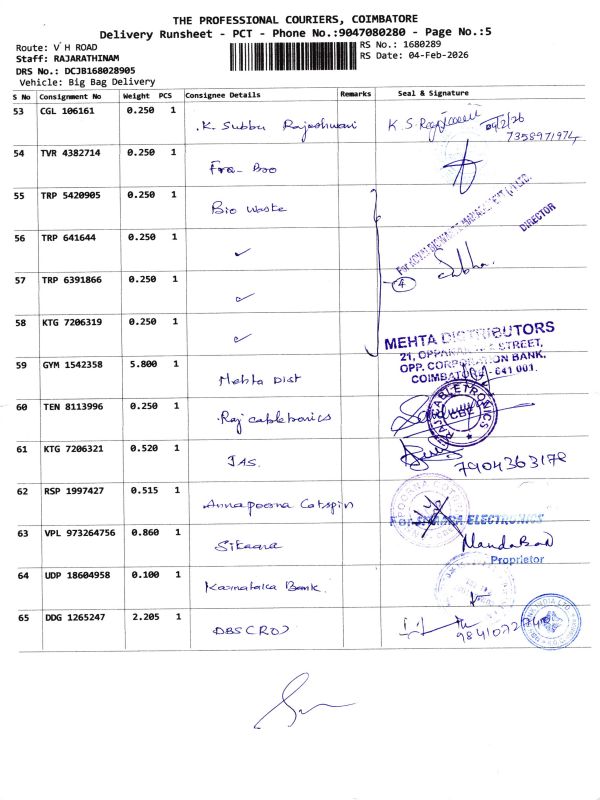 THE PROFESSIONAL COURIERS, COIMBATORE
Delivery Runsheet - PCT - Phone No.:9047080280 - Page No.:5
Route: V H ROAD
RS No.: 1680289
Staff: RAJARATHINAM
RS Date: 04-Feb-2026
DRS No.: DCJB168028905
Vehicle: Big Bag Delivery
S No Consignment No Weight PCS Consignee Details Remarks Seal & Signature
53 CGL 106161 0.250 1 K. Subbu Rajeshwari 04/2/26
7358971974
54 TVR 4382714 0.250 1
55 TRP 5420905 0.250 1 Bio Waste
DIRECTOR
56 TRP 641644 0.250 1 ✓
57 TRP 6391866 0.250 1 ✓ 4 Subha.
58 KTG 7206319 0.250 1 ✓
MEHTA DISTRIBUTORS
21, STREET,
OPP. CORPORATION BANK,
COIMBATORE - 641 001.
59 GYM 1542358 5.800 1 Mehta Dist
60 TEN 8113996 0.250 1 Raj cabletronics
RAJ CABLETRONICS
CBE
61 KTG 7206321 0.520 1 JAS. 7904363178
62 RSP 1997427 0.515 1 Annapoorna Cotspin
For ELECTRONICS
63 VPL 973264756 0.860 1 Sitaara
Proprietor
64 UDP 18604958 0.100 1 Karnataka Bank.
65 DDG 1265247 2.205 1 DBS